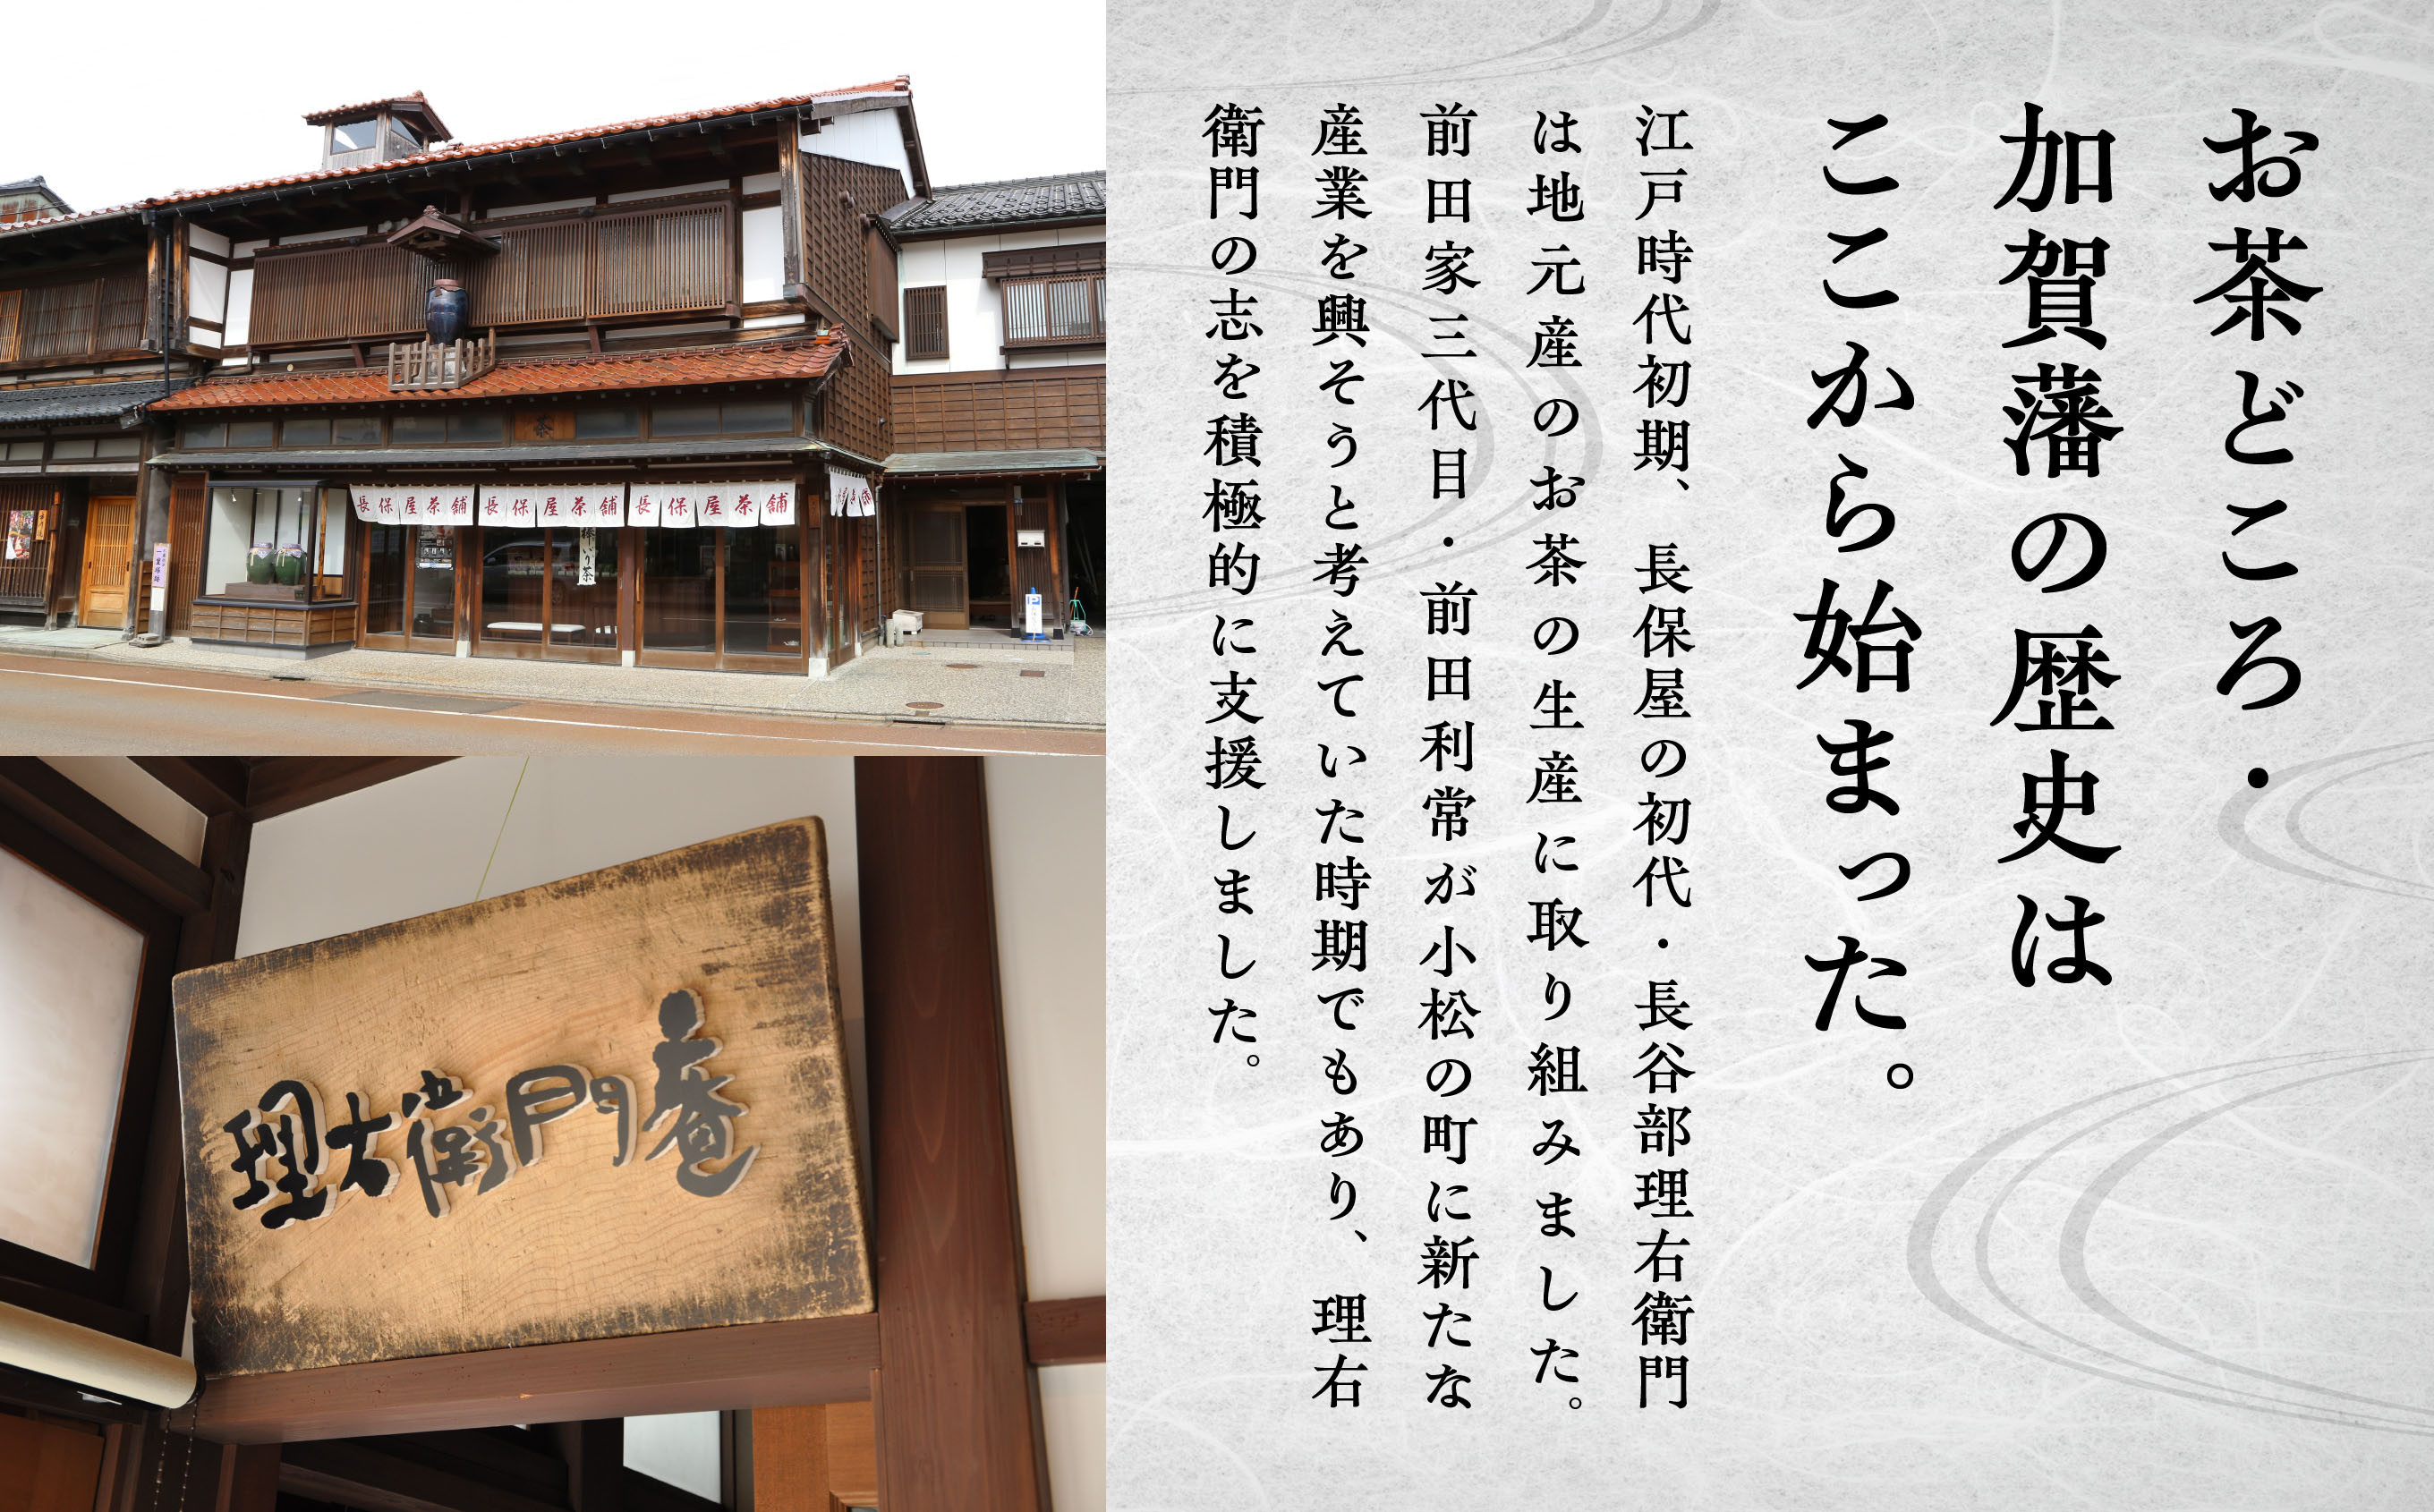 お茶どころ・
加賀藩の歴史は
ここから始まった。
江戸時代初期、長保屋の初代・長谷部理右衛門
は地元産のお茶の生産に取り組みました。
前田家三代目・前田利常が小松の町に新たな
産業を興そうと考えていた時期でもあり、理右
衛門の志を積極的に支援しました。
茶
長保屋茶舗 長保屋茶舗 長保屋茶舗
棒いり茶
理右衛門庵